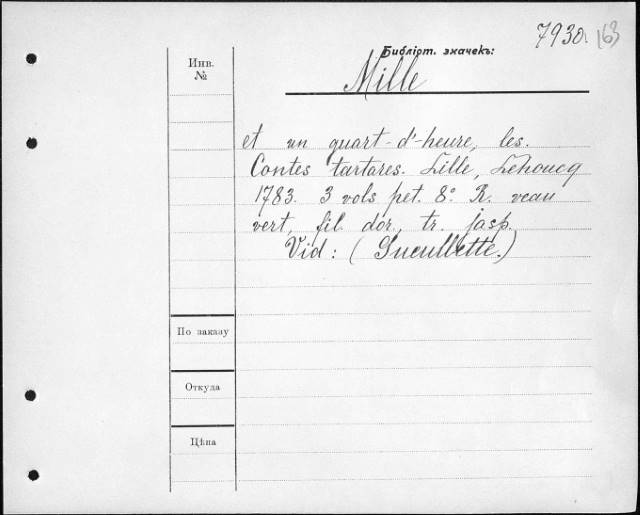 7930. 163
Библіот. значекъ:
Инв.
№
Mille
et un quart-d'-heure, les.
Contes tartares. Lille, Lehoucq
1783. 3 vols pet. 8º. R. veau
vert, fil. dor., tr. jasp.
Vid: (Gueullette.)
По заказу
Откуда
Цѣна